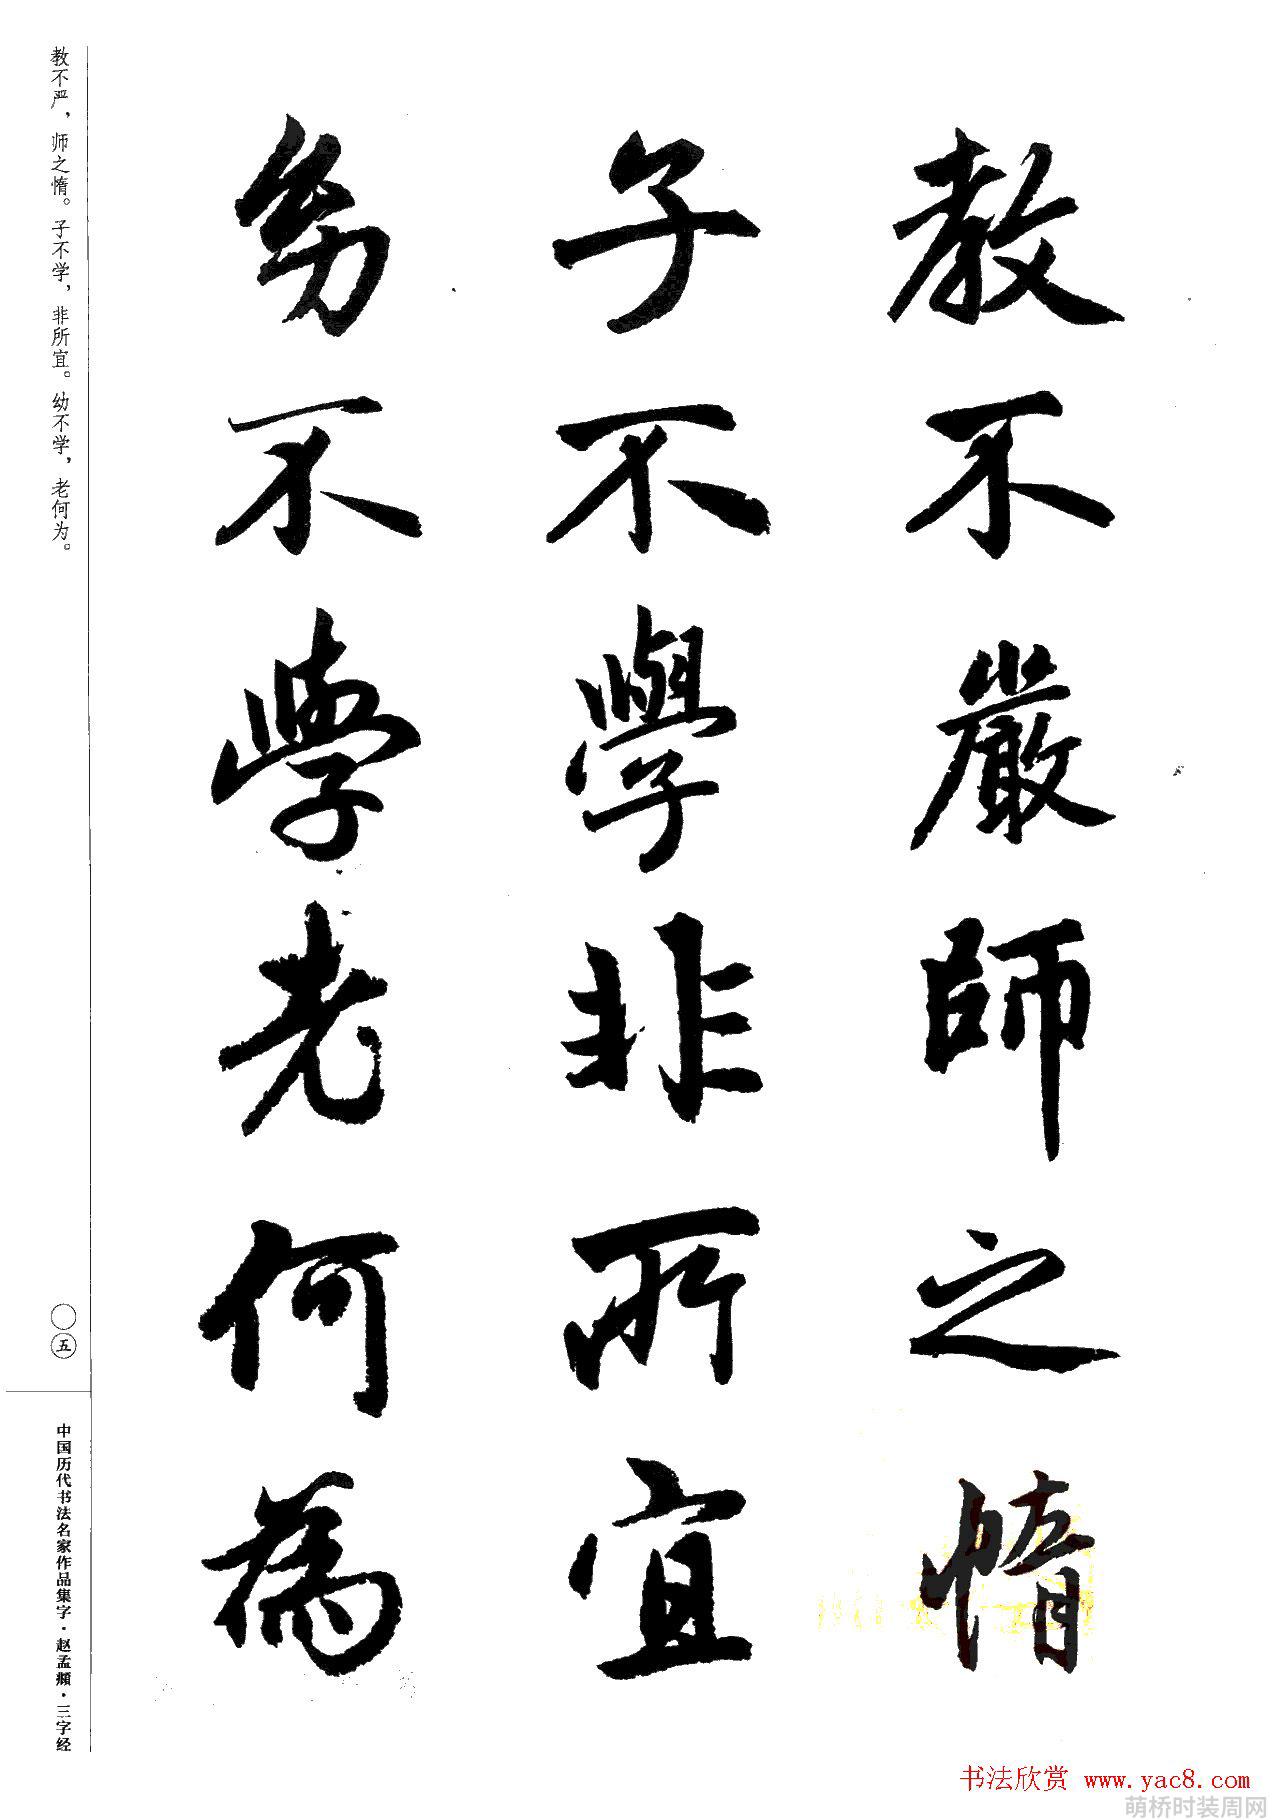 教不嚴師之惰
子不學非所宜
幼不學老何為
教不严，师之惰。子不学，非所宜。幼不学，老何为。
〇五
中国历代书法名家作品集字·赵孟頫·三字经
书法欣赏 www.yac8.com
萌桥时装周网